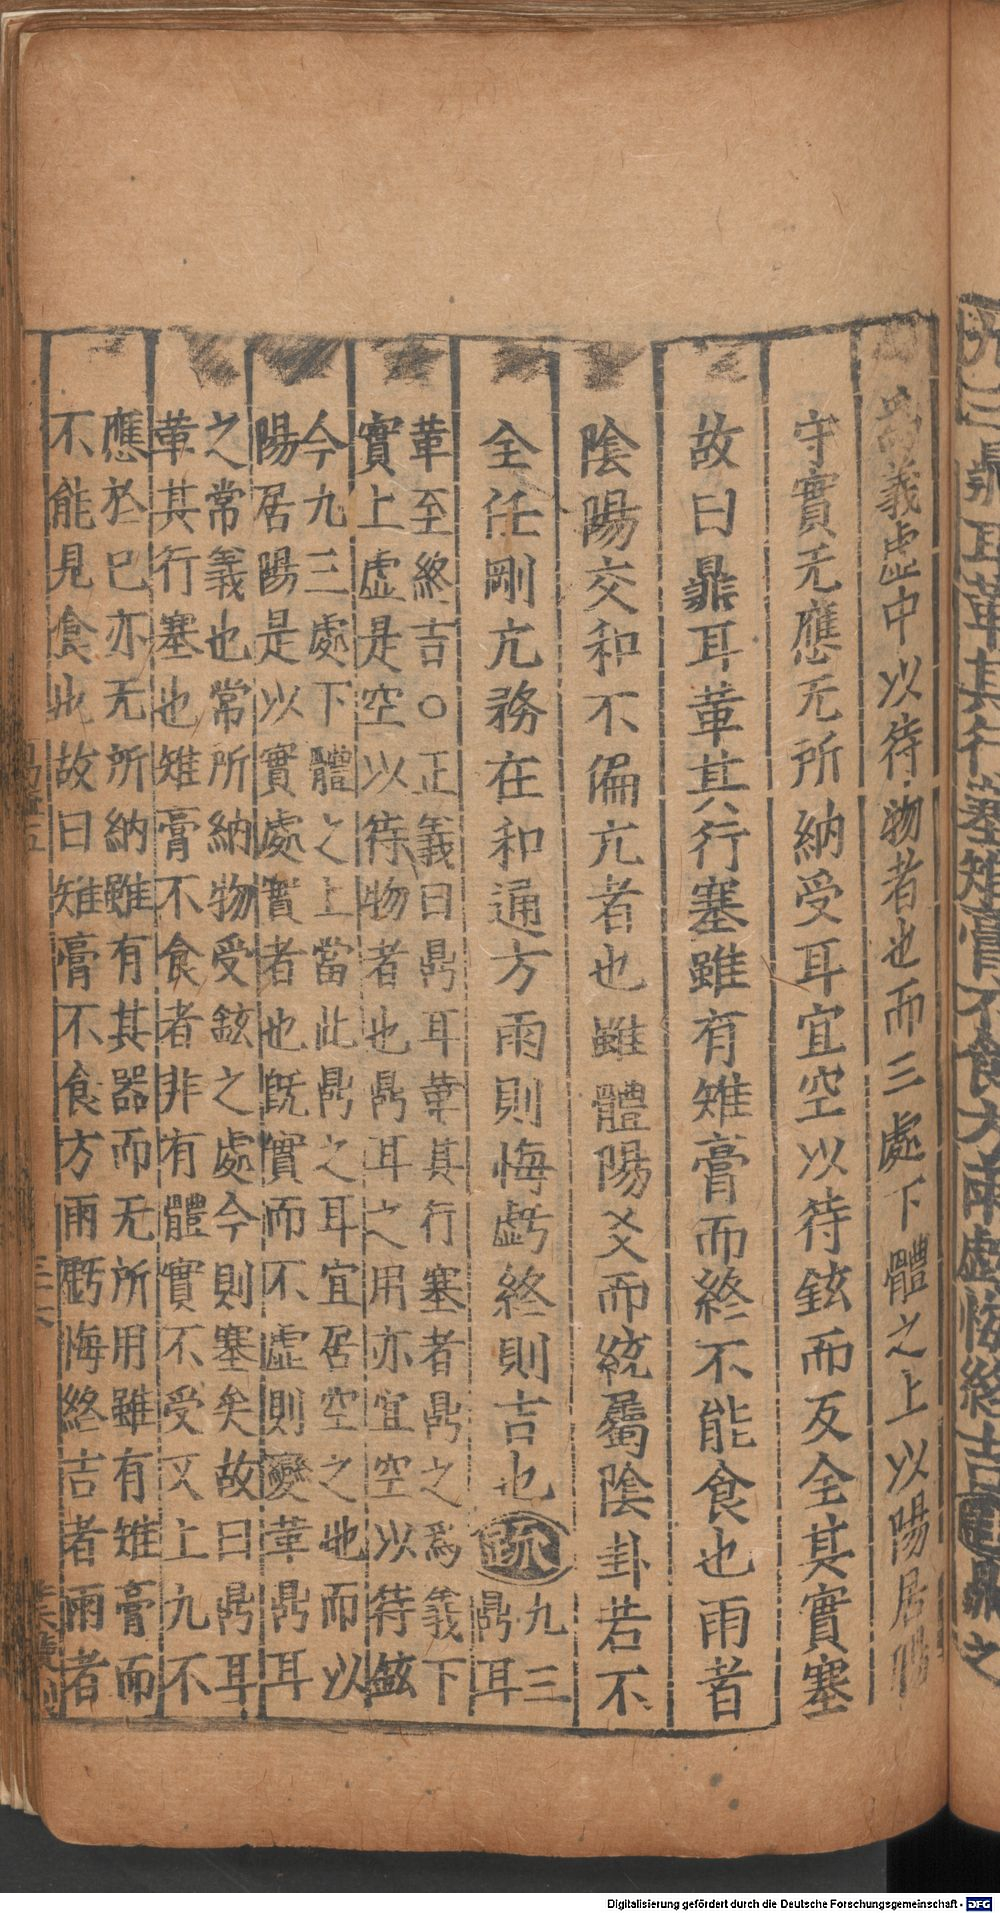 九三鼎耳革其行塞雉膏不食方雨虧悔終吉註鼎之
爲義虛中以待物者也而三處下體之上以陽居陽
守實无應无所納受耳宜空以待鉉而反全其實塞
故曰鼎耳革其行塞雖有雉膏而終不能食也雨者
陰陽交和不偏亢者也雖體陽爻而統屬陰卦若不
全任剛亢務在和通方雨則悔虧終則吉也疏九三
鼎耳
革至終吉○正義曰鼎耳革其行塞者鼎之爲義下
實上虛是空以待物者也鼎耳之用亦宜空以待鉉
今九三處下體之上當此鼎之耳宜居空之地而以
陽居陽是以實處實者也旣實而不虛則變革鼎耳
之常義也常所納物受鉉之處今則塞矣故曰鼎耳
革其行塞也雉膏不食者非有體實不受又上九不
應於已亦无所納雖有其器而无所用雖有雉膏而
不能見食也故曰雉膏不食方雨虧悔終吉者雨者
易疏五
三十六
Digitalisierung gefördert durch die Deutsche Forschungsgemeinschaft - DFG